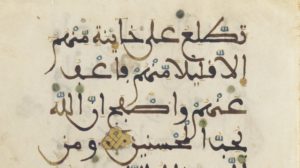 تطلع على خاينة منهم
الا قليلا منهم فاعف
عنهم واصفح ان الله
يحب المحسنين ومن